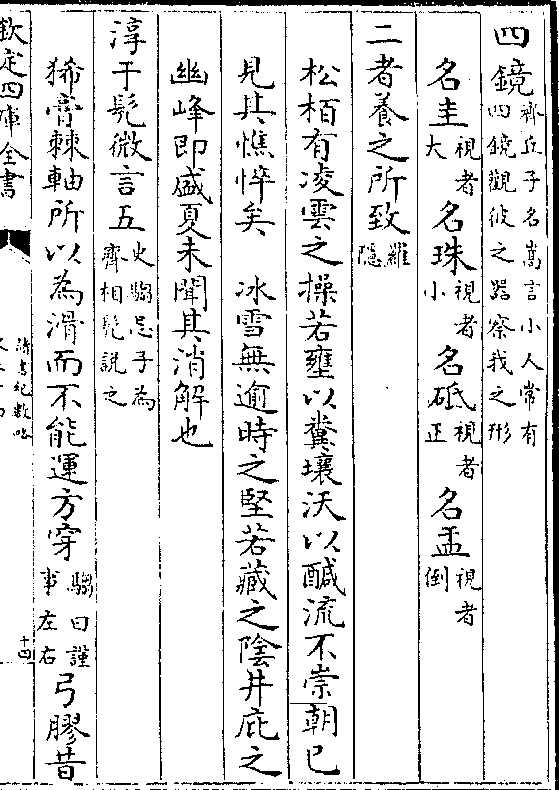 四鏡齊丘子名嵩言小人常有四鏡觀彼之器察我之形
名圭視者大名珠視者小名砥視者正名盂視者倒
二者養之所致羅隱
松栢有凌雲之操若壅以糞壤沃以鹹流不崇朝已
見其憔悴矣　冰雪無逾時之堅若藏之陰井庇之
幽峰即盛夏未聞其消解也
淳于髠微言五史騶忌子為齊相髠説之
狶膏棘軸所以為滑而不能運方穿騶曰謹事左右弓膠昔
欽定四庫全書
讀書紀數略
十四